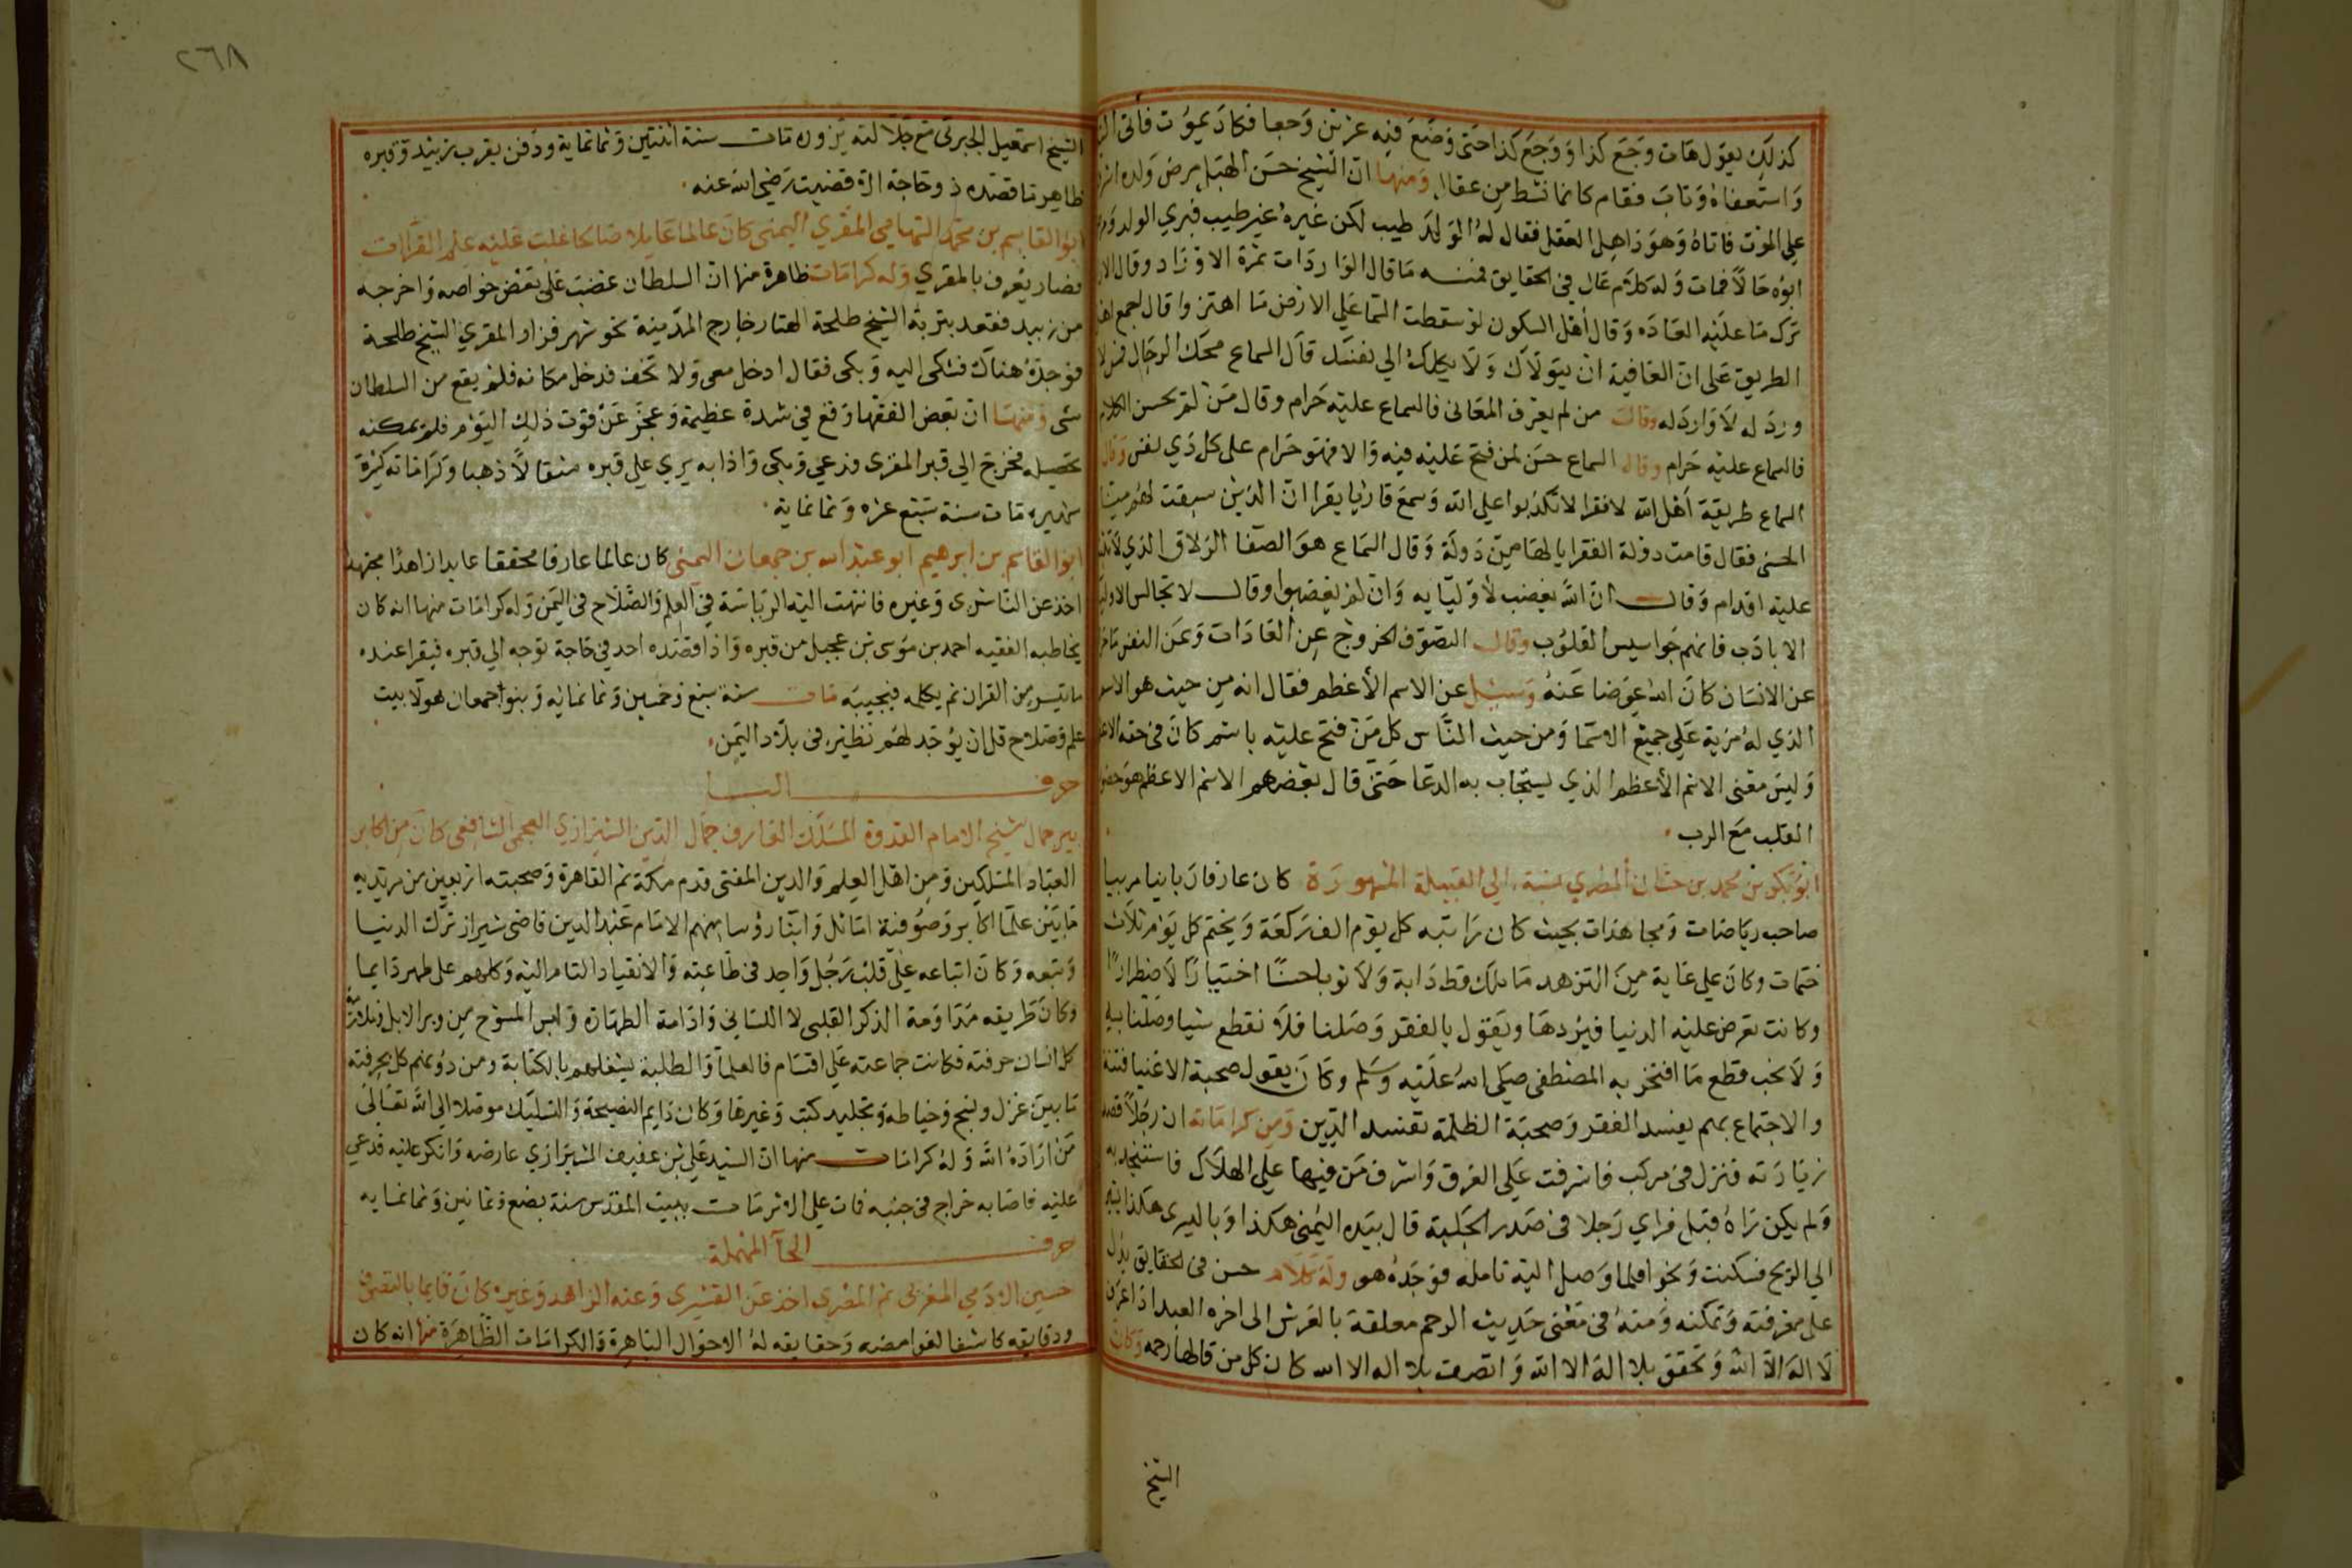 كذلك يقول هات وجع كذا ووجع كذا حتى وضع فيه عزيتن وجعا فكاد يموت فأتى
واستعفاه وتاب فقام كانما نشط من عقال ومنها ان الشيخ حسن الهبل مرض ولده
على الموت فاتاه وهو ذاهل العقل فقال له الولد طيب لكن غيره غير طيب فبرى الولد
ابوه حالا فمات وله كلام عال في الحقايق فمنه ما قال الواردات ثمرة الاوراد وقال
ترك ما عليه العاده وقال أهل السكون لو سقطت السما على الارض ما اهتزوا قال اجمع
الطريق على ان العافية ان يتولاك ولا يكلك الى نفسك قال السماع محك الرجال
ورد له لا وارد له وقال من لم يعرف المعانى فالسماع عليه حرام وقال من لم يحسن الكلام
فالسماع عليه حرام وقال السماع حسن لمن فتح عليه فيه والا فهو حرام على كل ذي نفس وقال
السماع طريقة أهل الله لا فقرا لا تكذبوا على الله وسمع قاريا يقرا ان الذين سبقت لهم منا
الحسنى فقال قامت دولة الفقرا يا لها من دولة وقال السماع هو الصفا الزلاق الذي لا
عليه اقدام وقال ان الله يغضب لأوليايه وان لم يغضبوا وقال لا تجالس
الا بادب فانهم جواسيس القلوب وقال التصوف الخروج عن العادات وعن النفس
عن الانسان كان الله عوضا عنه وسئل عن الاسم الأعظم فقال انه من حيث هو
الذي له مزية على جميع الاسما ومن حيث الناس كل من فتح عليه باسم كان في حقه
وليس معنى الاسم الأعظم الذي يستجاب به الدعا حتى قال بعضهم الاسم الاعظم هو
القلب مع الرب
ابو بكر بن محمد بن حسان المضري نسبة الى القبيلة المشهورة كان عارفا ربانيا مربيا
صاحب رياضات ومجاهدات بحيث كان راتبه كل يوم الف ركعة ويختم كل يوم ثلاث
ختمات وكان على غاية من التزهد ما ملك قط دابة ولا ثوبا حسنا اختيارا لا ضطرارا
وكانت تعرض عليه الدنيا فيردها ويقول بالفقر وصلنا فلا نقطع شيا وصلنا به
ولا نحب قطع ما افتخر به المصطفى صلى الله عليه وسلم وكان يقول صحبة الاغنيا فتنة
والاجتماع بهم يفسد الفقر وصحبة الظلمة تفسد الدين ومن كراماته ان رجلا قصد
زيارته فنزل في مركب فاشرفت على الغرق واشرف من فيها على الهلاك فاستنجد به
ولم يكن راه قبل فراي رجلا في صدر الجلبة قال بيده اليمنى هكذا وباليسرى هكذا
الى الريح فسكنت ونجوا فلما وصل اليه تامله فوجده هو وله كلام حسن في الحقايق يدل
على معرفته وتمكنه ومنه في معنى حديث الرحم معلقة بالعرش الى اخره العبد اذا عرف
لا اله الا الله وتحقق بلا اله الا الله واتصف بلا اله الا الله كان كل من قالها رحمه وكان
الشيخ
٢٦٨
الشيخ اسمعيل الجبرتى مع جلالته يزوره مات سنة اثنتين وثمانماية ودفن بقرب زبيد وقبره
ظاهر ما قصده ذو حاجة الا قضيت رضي الله عنه
ابو القاسم بن محمد التهامي المقري اليمنى كان عالما عاملا صالحا غلب عليه علم القراات
فصار يعرف بالمقري وله كرامات ظاهرة منها ان السلطان غضب على بعض خواصه واخرجه
من زبيد فقعد بتربة الشيخ طلحة الهتار خارج المدينة نحو شهر فزار المقري الشيخ طلحة
فوجده هناك فشكى اليه وبكى فقال ادخل معى ولا تخف فدخل مكانه فلم يقع من السلطان
شى ومنها ان بعض الفقها وقع في شدة عظيمة وعجز عن قوت ذلك اليوم فلم يمكنه
تحصيله فخرج الى قبر المقرى فدعى وبكى واذا به يرى على قبره مثقالا ذهبا وكراماته كثيرة
شهيره مات سنة سبع عشره وثمانماية
ابو القاسم بن ابرهيم ابو عبد الله بن جمعان اليمنى كان عالما عارفا محققا عابدا زاهدا مجتهدا
اخذ عن الناشرى وغيره فانتهت اليه الرياسة في العلم والصلاح في اليمن وله كرامات منها انه كان
يخاطبه الفقيه احمد بن موسى بن عجيل من قبره واذا قصده احد في حاجة توجه الى قبره فيقرا عنده
ما تيسر من القران ثم يكلمه فيجيبه مات سنة سبع وخمسين وثمانمايه وبنوا جمعان هولا بيت
علم وصلاح قل ان يوجد لهم نظير في بلاد اليمن
حرف البا
بير جمال شيخ الامام القدوة المسلك العارف جمال الدين الشيرازي العجمى الشافعى كان من اكابر
العباد المسلكين ومن اهل العلم والدين المفتى قدم مكة ثم القاهرة وصحبته اربعين من مريديه
ما بين علما اكابر وصوفية اماثل وابنا رؤسا منهم الامام عبد الدين قاضى شيراز ترك الدنيا
وتبعه وكان اتباعه على قلب رجل واحد في طاعته والانقياد التام اليه وكلهم على طهر دايما
وكان طريقه مداومة الذكر القلبى لا اللسانى وادامة الطهارة ولبس المسوح من وبر الابل وملازمة
كل انسان حرفته فكانت جماعته على اقسام فالعلما والطلبة يشغلهم بالكتابة ومن دونهم كل بحرفته
ما بين غزل ونسج وخياطه وتجليد كتب وغيرها وكان دايم النصيحة والتسليك موصلا الى الله تعالى
من اراده الله وله كرامات منها ان السيد على بن عفيف الشيرازي عارضه وانكر عليه فدعى
عليه فاصابه خراج في جنبه فات على الاثر مات ببيت المقدس سنة بضع وثمانين وثمانمايه
حرف الحآ المهملة
حسين الادمي المغربى ثم المصري اخذ عن القشيرى وعنه الزاهد وغيره كان قايما بالتصوف
ودقايقه كاشفا لغوامضه وحقايقه له الاحوال الباهرة والكرامات الظاهرة منها انه كان